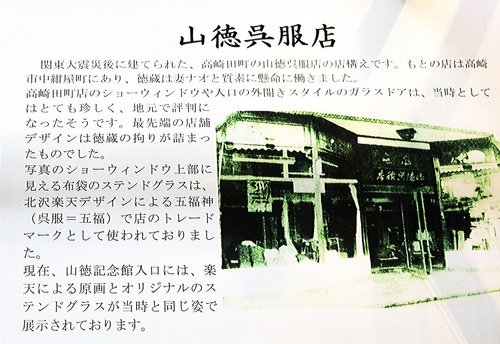 山徳呉服店
関東大震災後に建てられた、高崎田町の山徳呉服店の店構えです。もとの店は高崎
市中紺屋町にあり、徳蔵は妻ナオと質素に懸命に働きました。
高崎田町店のショーウィンドウや入口の外開きスタイルのガラスドアは、当時として
はとても珍しく、地元で評判に
なったそうです。最先端の店舗
デザインは徳蔵の拘りが詰まっ
たものでした。
写真のショーウィンドウ上部に
見える布袋のステンドグラスは、
北沢楽天デザインによる五福神
（呉服＝五福）で店のトレード
マークとして使われておりまし
た。
現在、山徳記念館入口には、楽
天による原画とオリジナルのス
テンドグラスが当時と同じ姿で
展示されております。